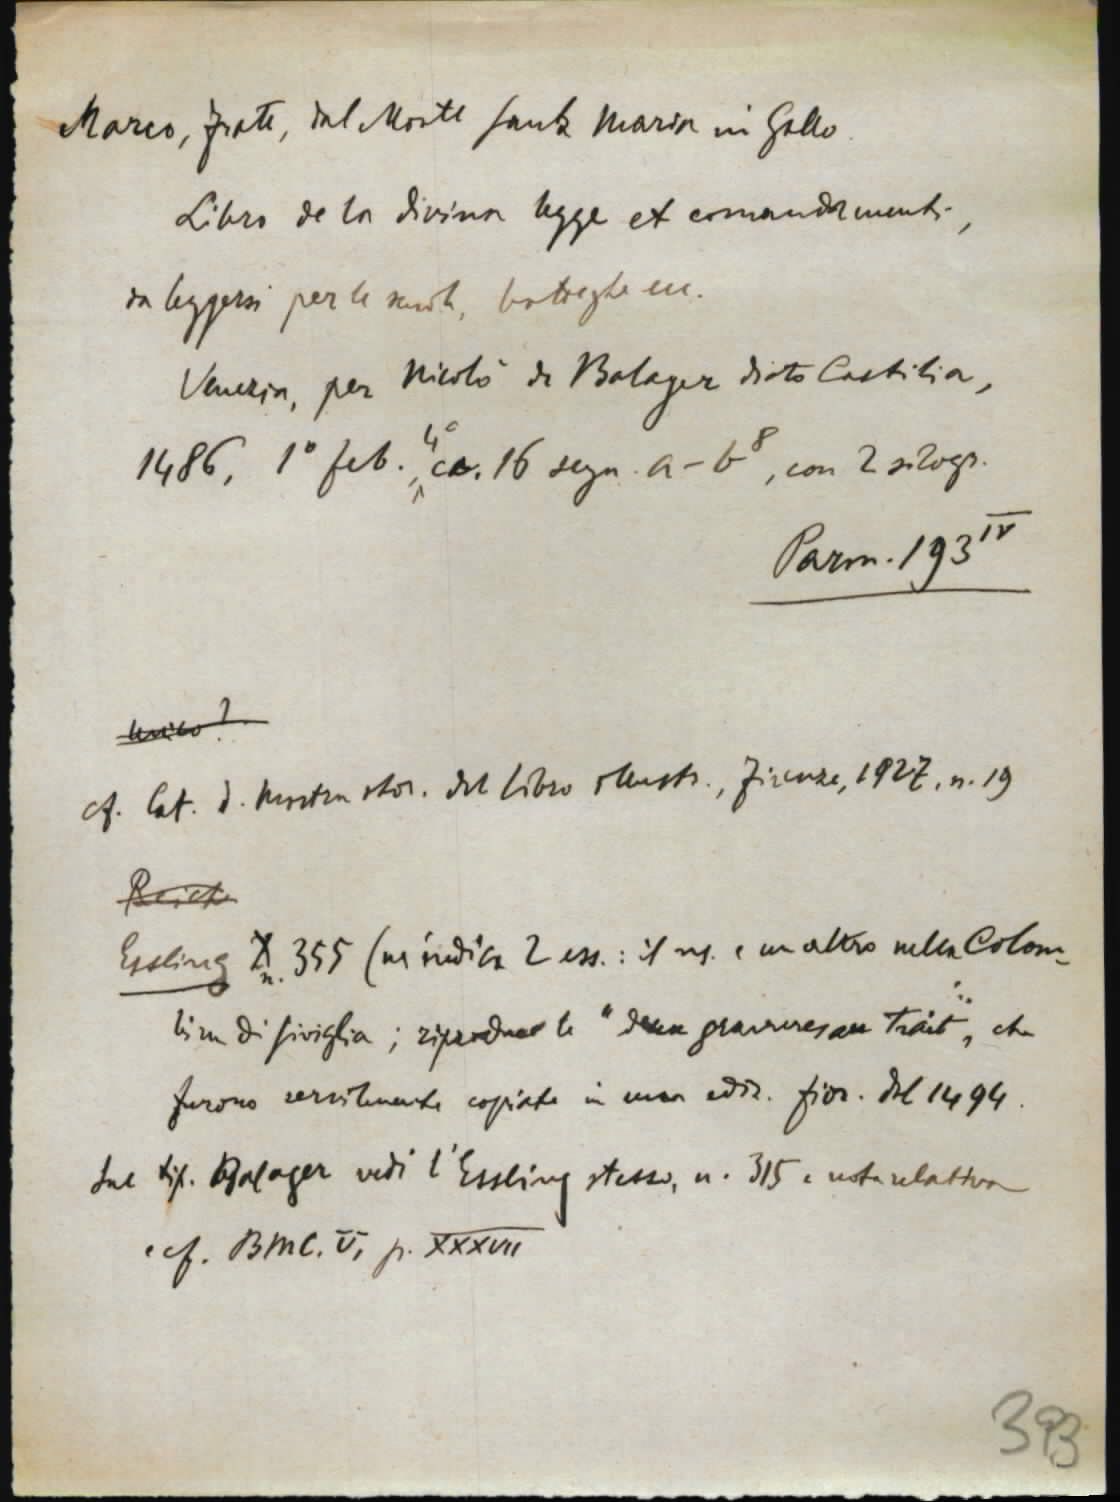 Marco, frate, dal Monte Santa Maria in Gallo.
Libro de la divina legge et comandamenti,
da leggersi per le scuole, botteghe ecc.
Venezia, per Nicolò de Balager dicto Castilia,
1486, 1° feb., 4° cc. 16 segn. a-b⁸, con 2 silogr.
Parm. 193 IV
Unico?
cf. Cat. d. Mostra stor. del Libro illustr., Firenze, 1927, n. 19
Reich
Essling n. 355 (ne indica 2 ess.: il ns. e un altro nella Colom-
bina di Siviglia; riproduce le "deux gravures au trait", che
furono servilmente copiate in una ediz. fior. del 1494.
Sul tip. Balager vedi l'Essling stesso, n. 315 e nota relativa
e cf. BMC. V, p. XXXVII
393